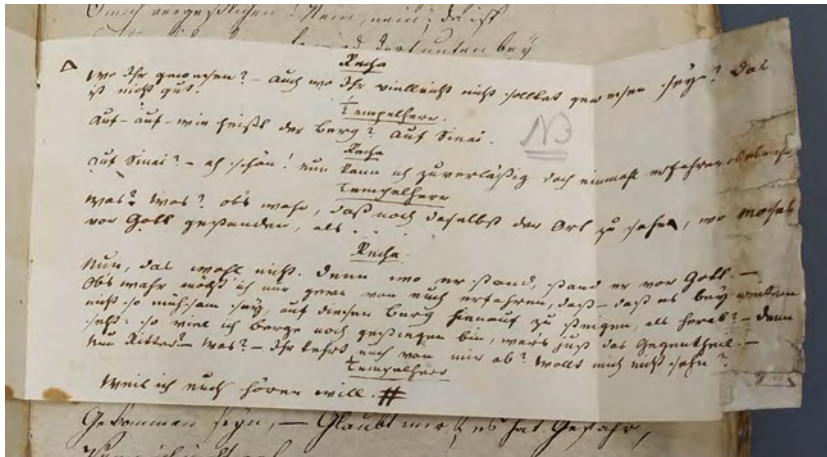 O mich vergeßlichen! Nein, nein; da ist
und dort unten bey
Recha
wo Ihr gewesen? – auch wo Ihr vielleicht nicht solltet gewesen seyn? Das
ist nicht gut.
Tempelherr.
Auf – auf – wie heißt der Berg? auf Sinai.
NB
Recha
auf Sinai? – ah schön! nun kann ich zuverläßig doch einmahl erfahren
Tempelherr
was? was? obs wahr, daß noch daselbst der Ort zu sehn, wo Moses
vor Gott gestanden, als . . .
Recha.
Nun, das wohl nicht. Denn wo er stand, stand er vor Gott. —
Obs wahr möcht ich nur gern von euch erfahren, daß – daß es bey weitem
nicht so mühsam sey, auf diesen Berg hinauf zu steigen, als herab? – denn
seht: so viel ich Berge noch gestiegen bin, war's just das Gegentheil. –
nu Ritter? – was? – Ihr kehrt euch von mir ab? wollt mich nicht sehn?
Tempelherr
Weil ich euch hören will. #
Gekommen seyn, — Glaubt mir, es hat Gefahr,
Wenn ich nicht